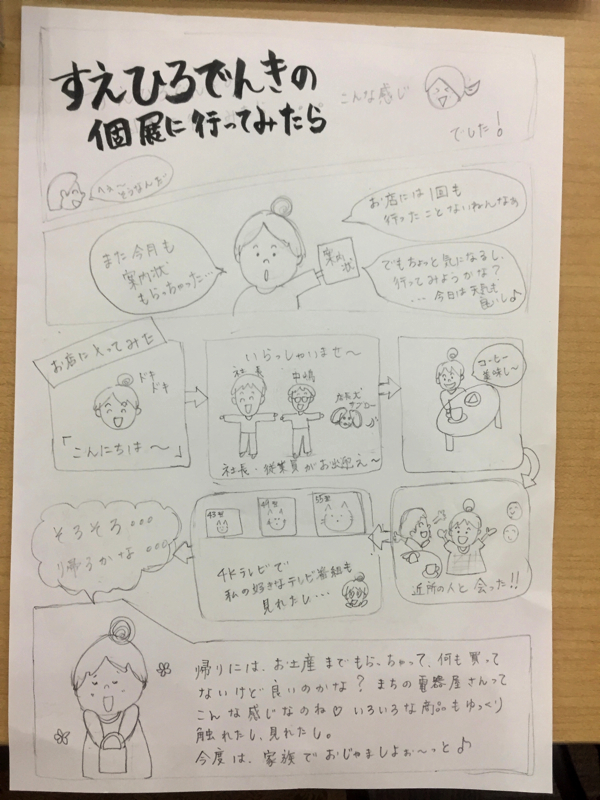 すえひろでんきの
個展に行ってみたら
こんな感じ
でした!
へぇ〜
そうなんだ
また今月も
案内状
もらっちゃった…
案内状
お店には1回も
行ったことないねんなぁ
でもちょっと気になるし、
行ってみようかな?
...今日は天気も
良いし♪
お店に入ってみた
ドキ
ドキ
「こんにちは〜」
いらっしゃいませ〜
社長
中嶋
店長犬
サブロー
社長・従業員がお出迎え〜
コーヒー
美味し〜
近所の人と会った!!
43型
49型
55型
4Kテレビで
私の好きなテレビ番組も
見れたし...
そろそろ。。。
帰るかな。。。
帰りには、お土産までもらっちゃって、何も買って
ないけど良いのかな?まちの電器屋さんって
こんな感じなのね♡いろいろな商品もゆっくり
触れたし、見れたし。
今度は、家族でおじゃましよぉ〜っと♪